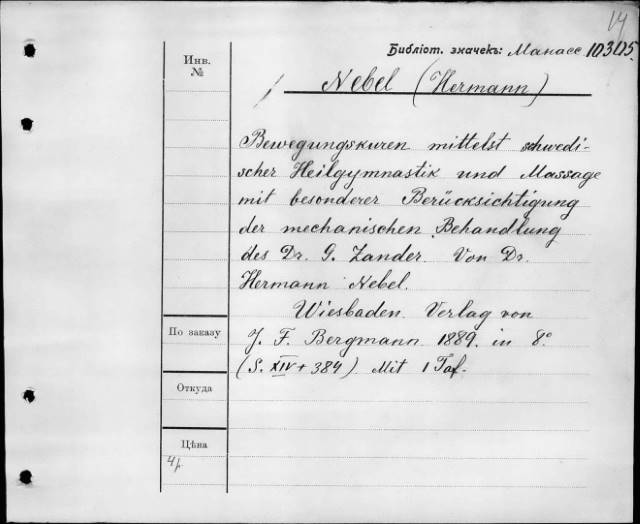 14
Библіот. значекъ: Манасс 10305.
Инв.
№
Nebel (Hermann)
Bewegungskuren mittelst schwedi-
scher Heilgymnastik und Massage
mit besonderer Berücksichtigung
der mechanischen Behandlung
des Dr. G. Zander. Von Dr.
Hermann Nebel.
Wiesbaden. Verlag von
J. F. Bergmann 1889. in 8°
(S. XIV + 384) Mit 1 Taf.
По заказу
Откуда
Цѣна
4р.